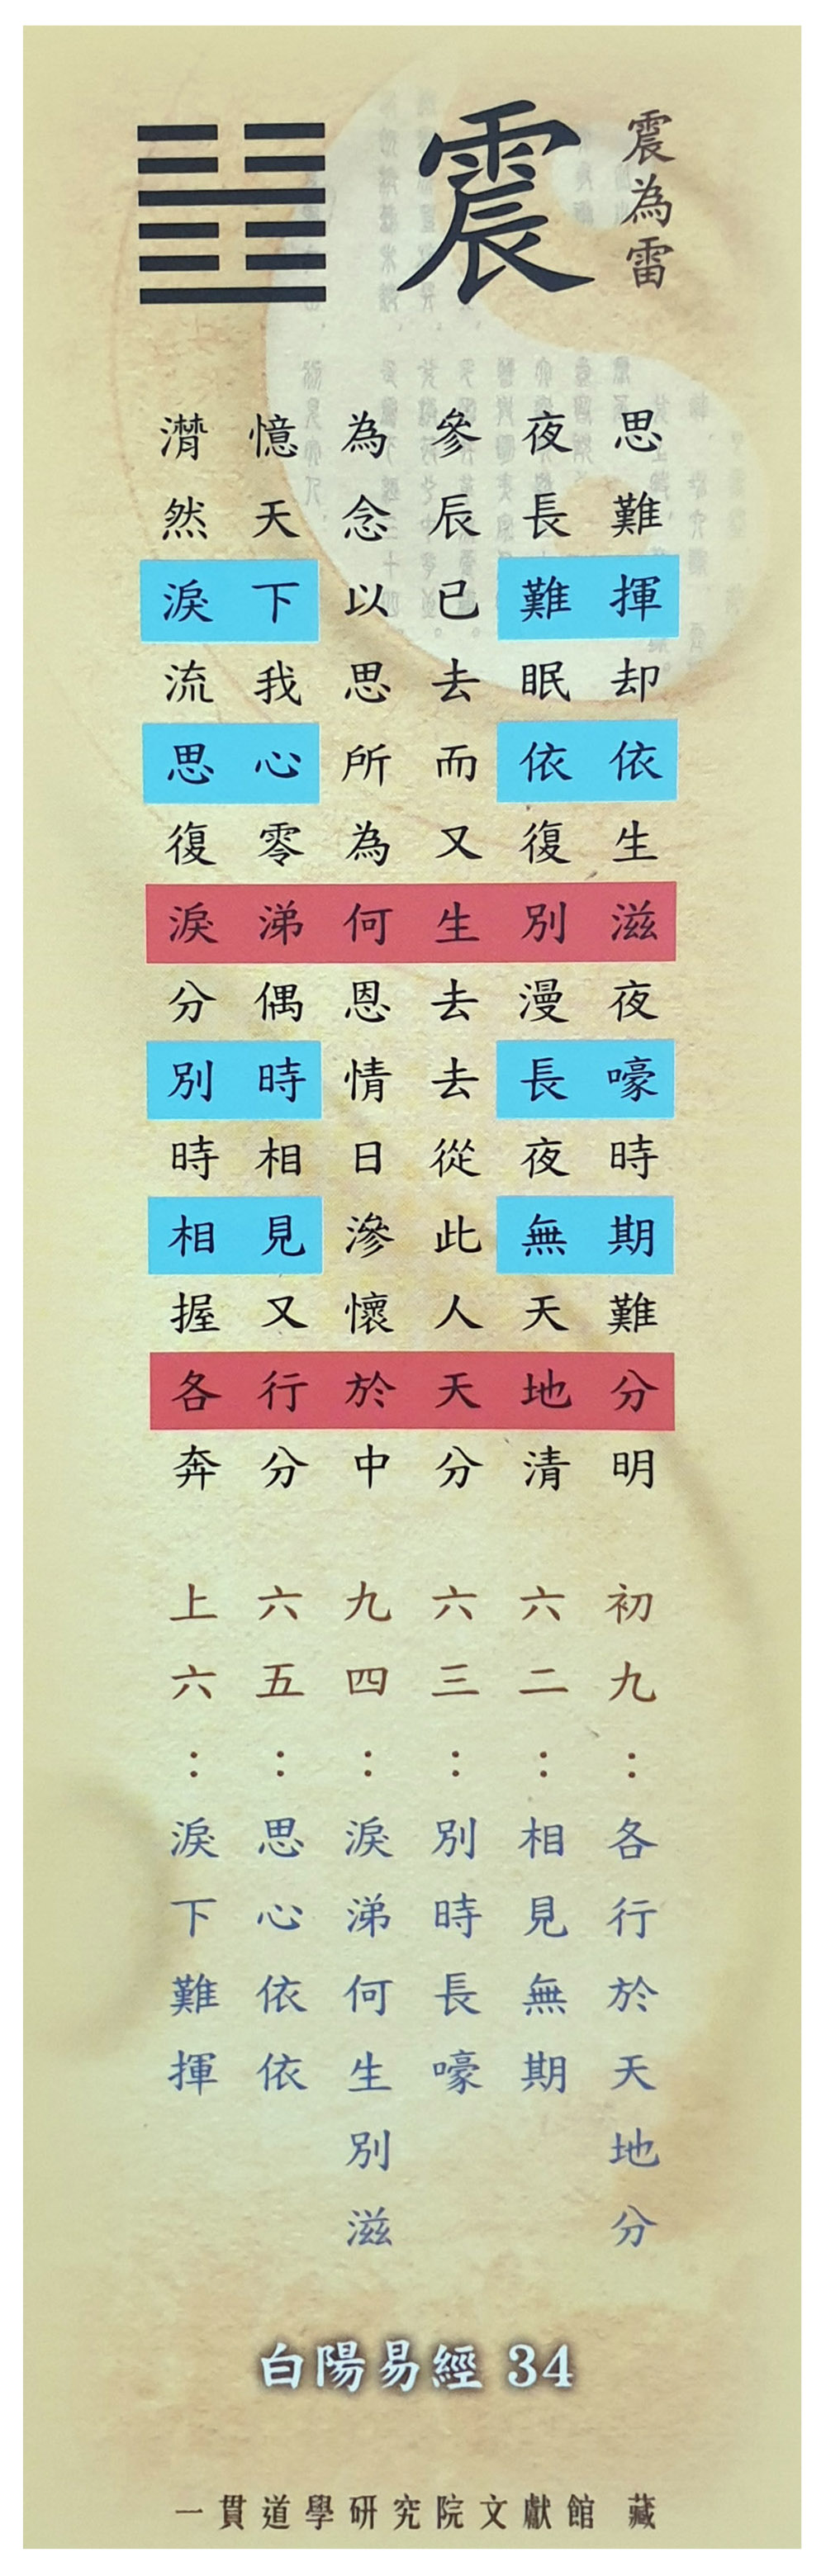 震為雷
震
思難揮却依生滋夜嚎時期難分明
夜長難眠依復別漫長夜無天地清
參辰已去而又生去去從此人天分
為念以思所為何恩情日滲懷於中
憶天下我心零涕偶時相見又行分
潸然淚流思復淚分別時相握各奔
初九：各行於天地分
六二：相見無期
六三：別時長嚎
九四：淚涕何生別滋
六五：思心依依
上六：淚下難揮
白陽易經 34
一貫道學研究院文獻館 藏